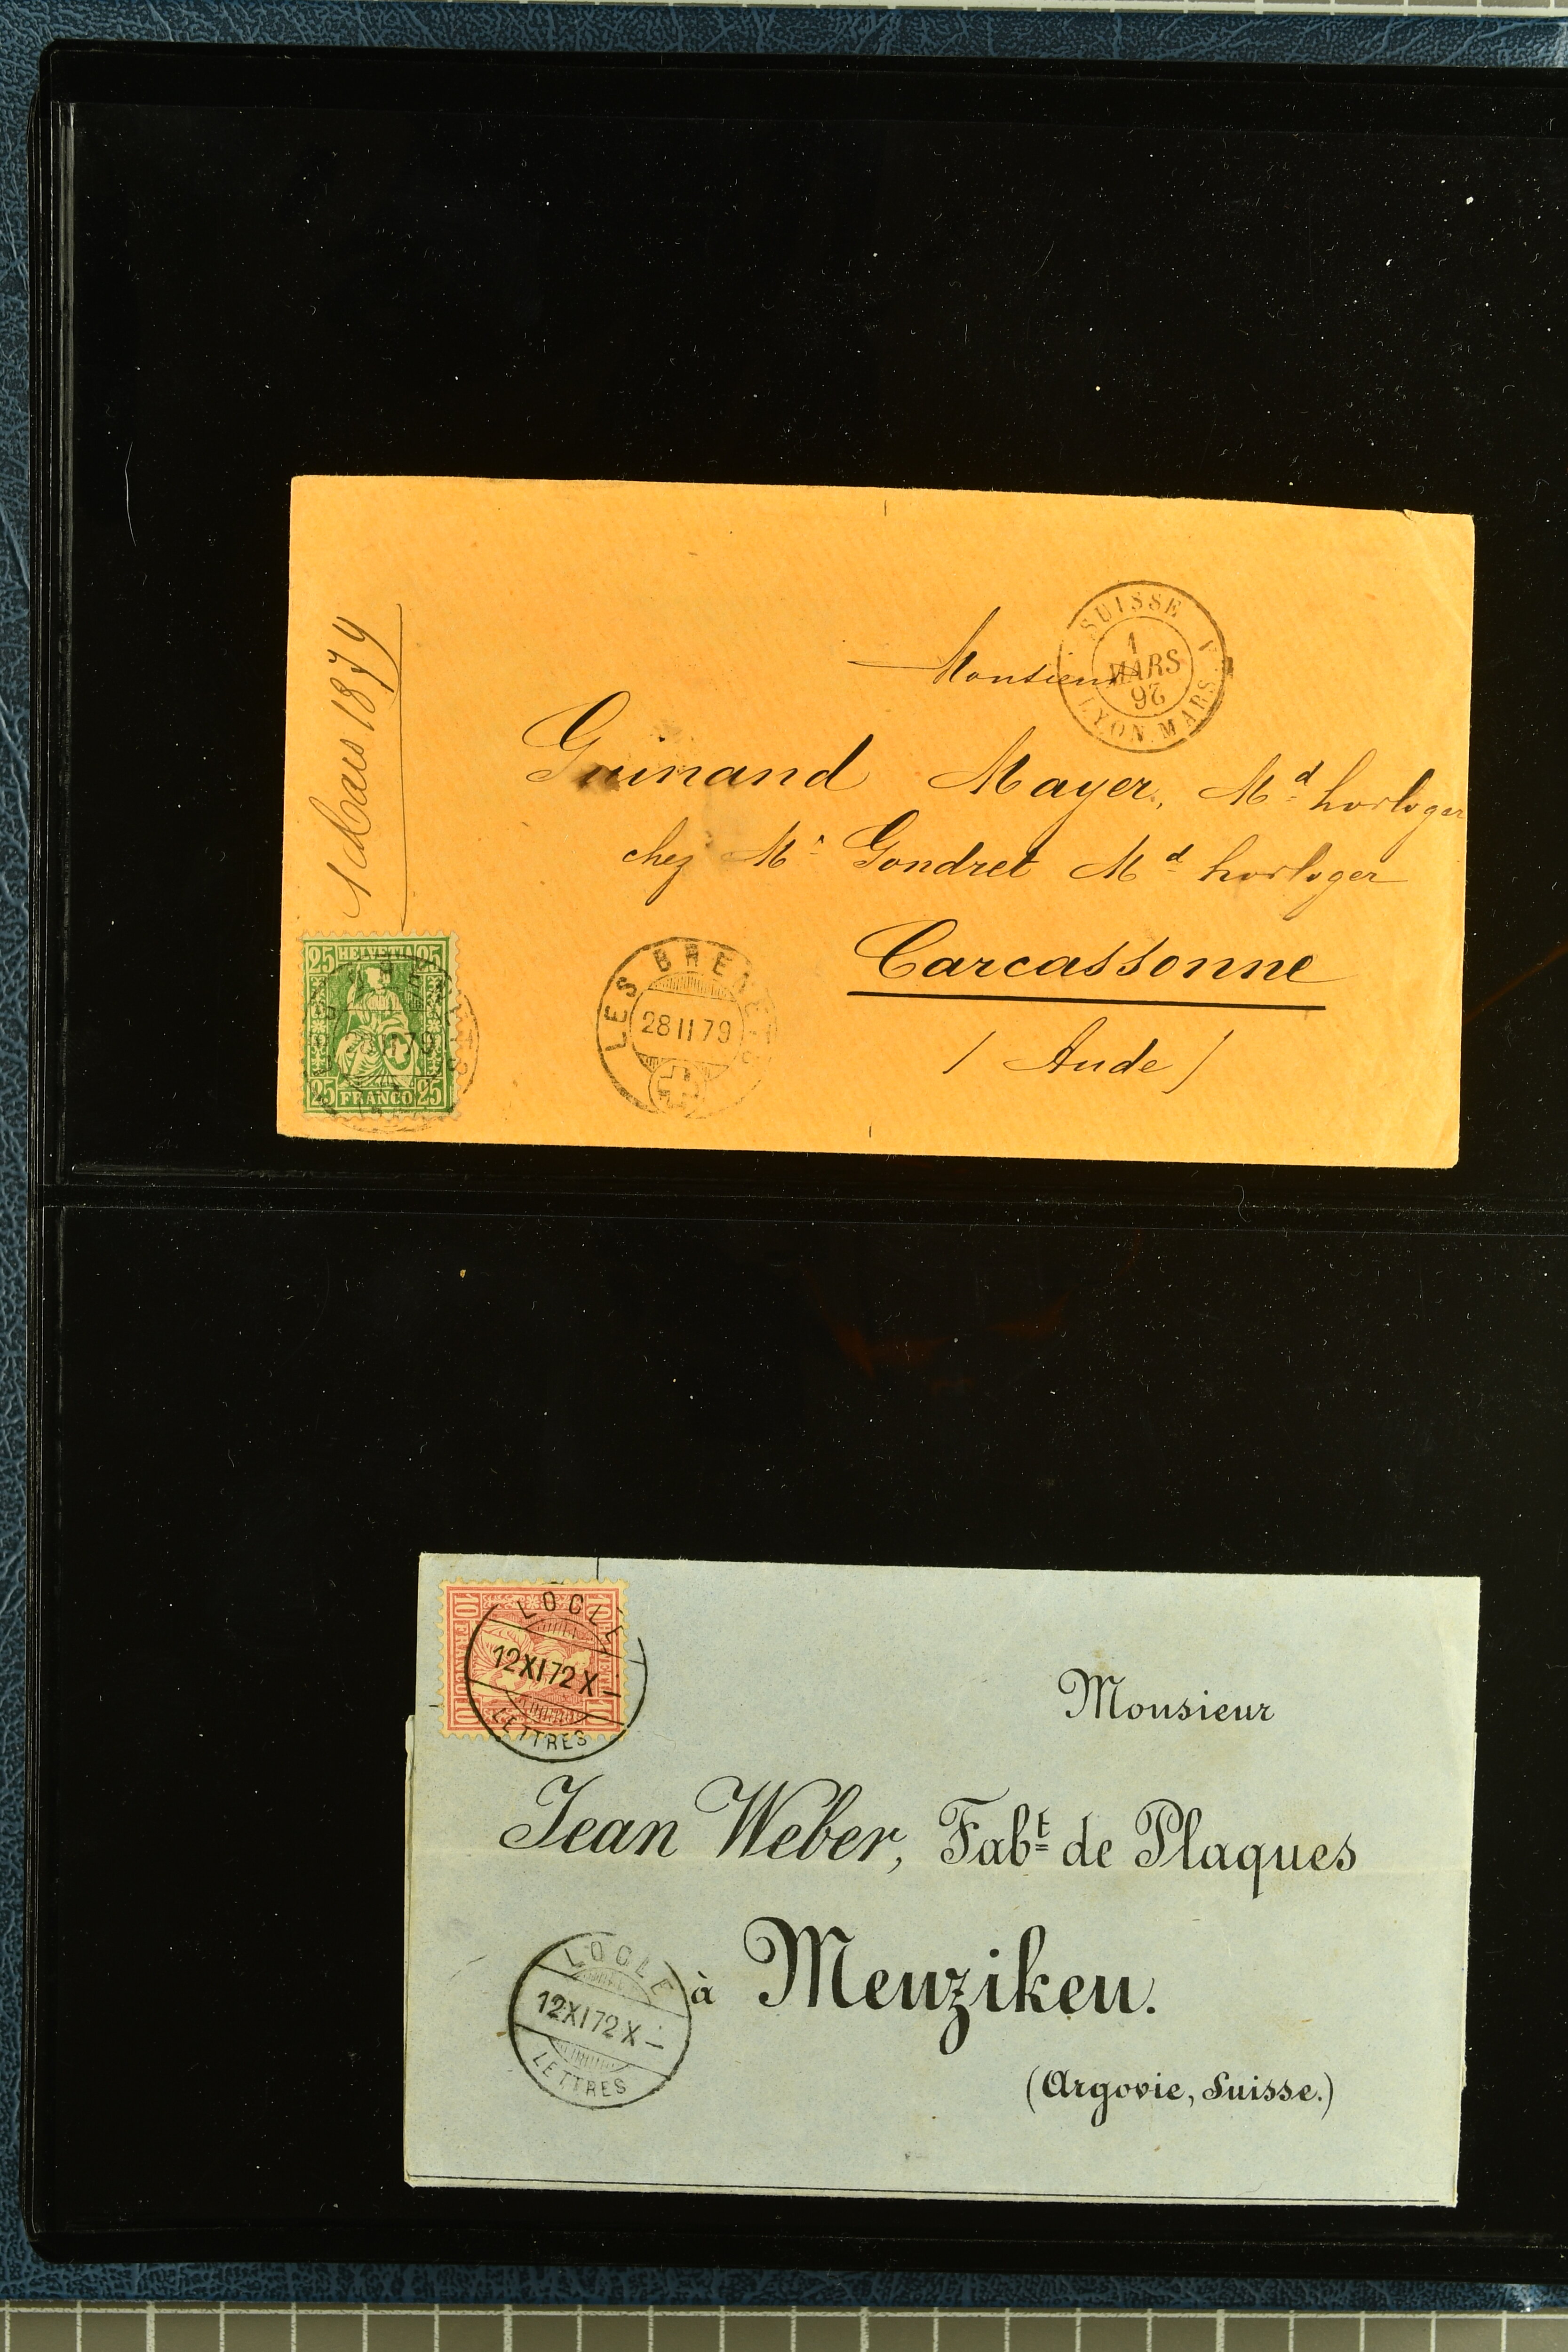 1 Mars 1879
SUISSE
1
MARS
97
LYON. MARS.
Monsieur
Guinand Mayer, Md horloger
chez Mr Gondret Md horloger
Carcassonne
(Aude)
25 HELVETIA 25
79
25 FRANCO 25
LES BRENETS
28 II 79
LOCLE
12 XI 72 X –
LETTRES
10 FRANCO 10
Monsieur
Jean Weber, Fabt de Plaques
à Menziken.
(Argovie, Suisse.)
LOCLE
12 XI 72 X –
LETTRES